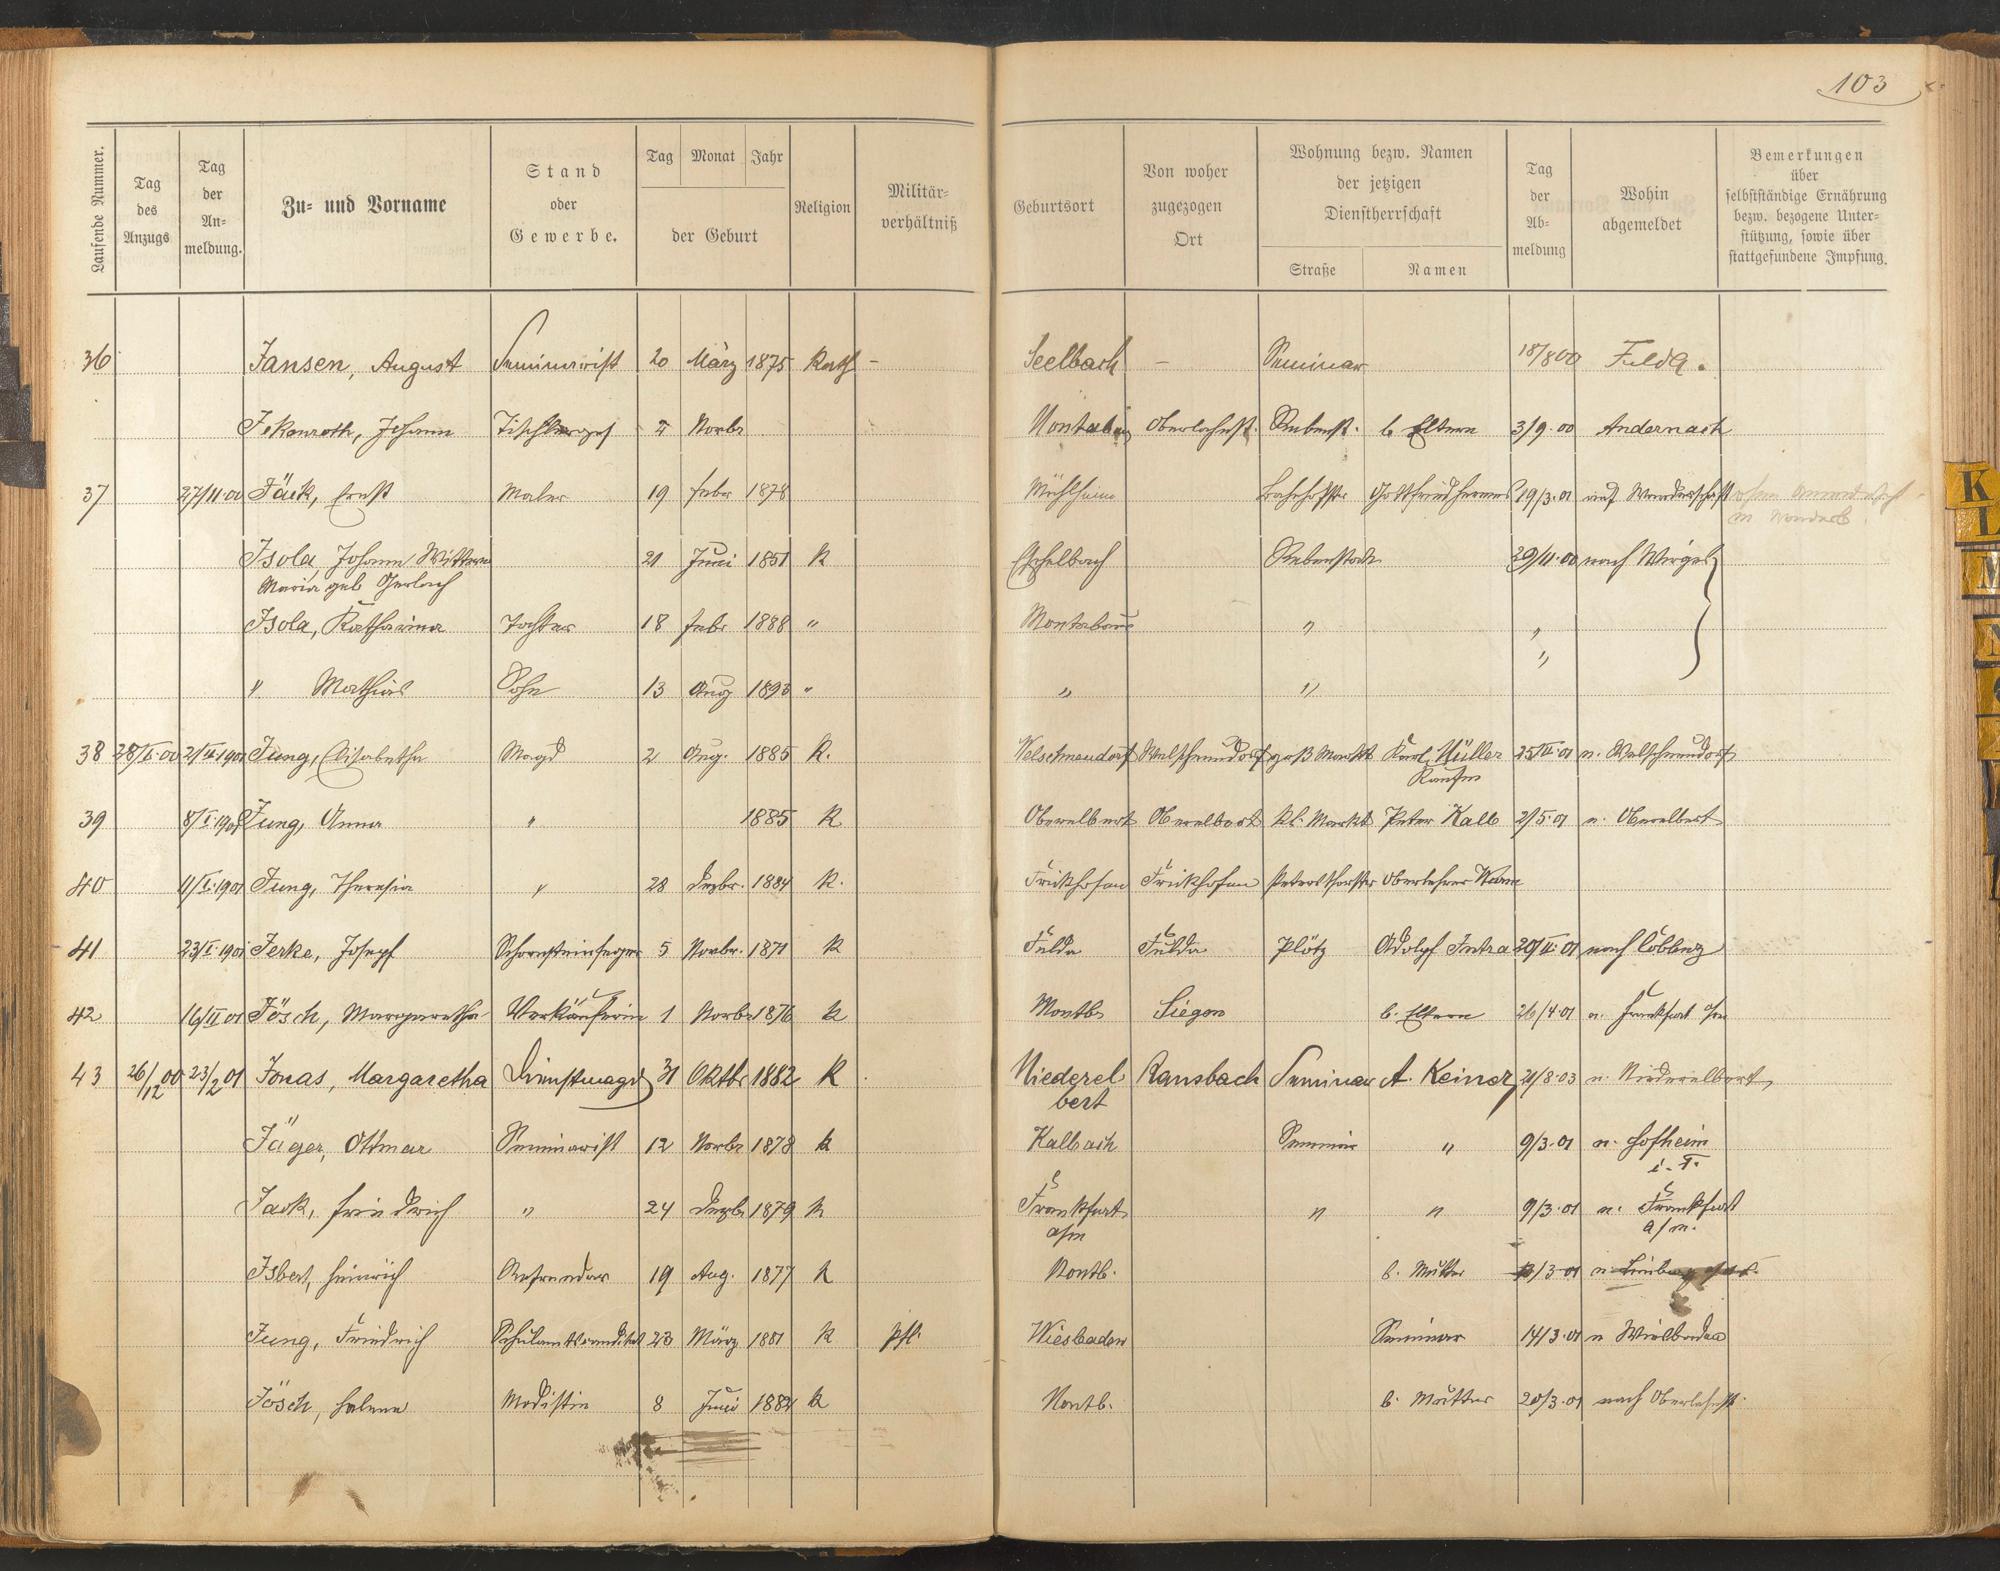 103
Laufende Nummer.
Tag des Anzugs
Tag der An-meldung.
Zu- und Vorname
Stand oder Gewerbe.
Tag Monat Jahr
der Geburt
Religion
Militär-verhältniß
Geburtsort
Von woher zugezogen Ort
Wohnung bezw. Namen der jetzigen Dienstherrschaft
Straße Namen
Tag der Ab-meldung
Wohin abgemeldet
Bemerkungen über selbstständige Ernährung bezw. bezogene Unter-stützung, sowie über stattgefundene Impfung.
36 Jansen, August Seminarist 20 März 1875 Kath - Seelbach - Seminar 18/8 00 Fulda.
Johann 4 Novbr Montabaur Oberlahnst. b Eltern 3/9.00 Andernach
37 27/11.00 Jäck, Ernst Maler 19 Febr 1878 Mühlheim 19/3.01 auf Wanderschaft
Isola, Johann Wittwe 21 Juni 1851 K Rebenstock 29/11.00 nach Wirges
Maria geb Gerlach
Isola, Katharina Tochter 18 Febr 1888 " Montabaur " "
" Mathias Sohn 13 Aug 1893 " " " "
38 Jung, Elisabetha Magd 2 Aug. 1885 K. Welschneudorf Welschneudorf groß Markt Karl Müller n. Welschneudorf
Kaufm
39 Jung, Anna " 1885 K Oberelbert Oberelbert kl. Markt Peter Kalb 2/5.01 n. Oberelbert
40 Jung, Theresia " 28 Dezbr. 1884 K. Frickhofen Frickhofen Oberlehrer
41 Jerke, Josef Schornsteinfeger 5 Novbr. 1871 K Fulda Fulda Plötz Adolf nach Coblenz
42 16/II 01 Jösch, Margaretha Verkäuferin 1 Novbr 1876 K Montb Siegen b. Eltern 26/4.01 n. Frankfurt a/m
43 26/12 00 23/2 01 Jonas, Margaretha Dienstmagd 31 Oktbr 1882 K Niederel Ransbach Seminar A. Keiner 21/8.03 n. Niederelbert
bert
Jäger, Ottmar Seminarist 12 Novbr 1878 K Kalbach Seminar " 9/3.01 n. Hofheim
i. T.
Jack, Friedrich " 24 Dezbr 1879 K Frankfurt " " 9/3.01 n. Frankfurt
a/m a/m.
Isbert, Heinrich Referendar 19 Aug. 1877 K Montb. b. Mutter /3.01 n. Limburg
Jung, Friedrich Schulamtskandidat 23 März 1881 K Pfl. Wiesbaden Seminar 14/3.01 n Wiesbaden
Jösch, Helene Modistin 8 Juni 1884 K Montb. b. Mutter 20/3.01 nach Oberlahnst.
K
L
M
N